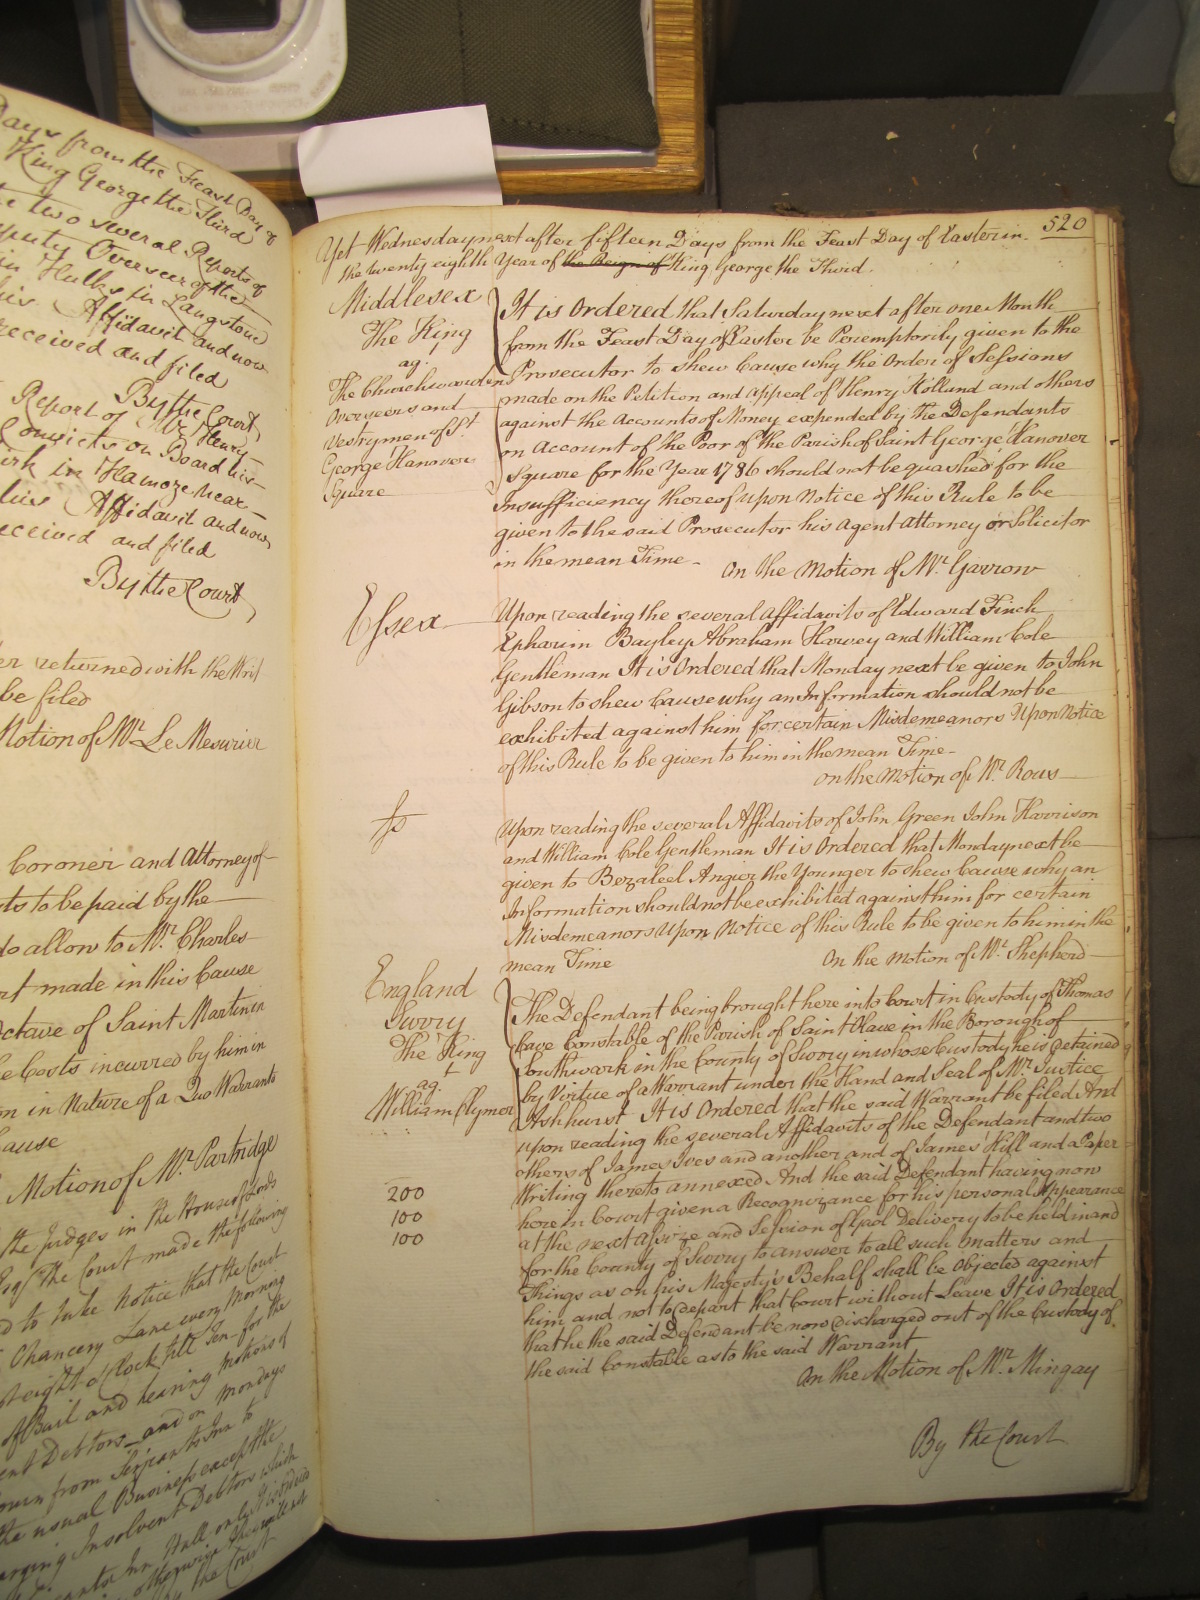 Days from the Feast Day of
King George the Third
the two several Reports of
Deputy Overseer of the
in Hulks in Langstone
his Affidavit and now
received and filed
By the Court
Report of Mr. Henry
Convicts on Board his
in Hamoze near
his Affidavit and now
received and filed
By the Court
er returned with the Writ
be filed
Motion of Mr. Le Mesurier
Coroner and Attorney of
sts to be paid by the
do allow to Mr. Charles
rt made in this Cause
Octave of Saint Martin in
e Costs incurred by him in
on in Nature of a Quo Warranto
Cause
Motion of Mr. Partridge
the Judges in the House of Lords
the Court made the following
d to take Notice that the Court
Chancery Lane every Morning
at eight o'Clock till Ten for the
of Bail and hearing Motions of
ent Debtors and on Mondays
ourn from Serjeants Inn to
the usual Business except the
arging Insolvent Debtors which
Inn Hall only
otherwise
the Court
520
Yet Wednesday next after fifteen Days from the Feast Day of Easter in
the twenty eighth Year of the Reign of King George the Third
Middlesex
The King
agt
The Churchwardens
Overseers and
Vestrymen of St.
George Hanover
Square
It is Ordered that Saturday next after one Month
from the Feast Day of Easter be Peremptorily given to the
Prosecutor to shew Cause why the Order of Sessions
made on the Petition and Appeal of Henry Holland and others
against the Accounts of Money expended by the Defendants
on Account of the Poor of the Parish of Saint George Hanover
Square for the Year 1786 should not be quashed for the
Insufficiency thereof upon Notice of this Rule to be
given to the said Prosecutor his Agent Attorney or Solicitor
in the mean Time
On the Motion of Mr. Garrow
Essex
Upon reading the several Affidavits of Edward Finch
Epharim Bayley Abraham Harvey and William Cole
Gentleman It is Ordered that Monday next be given to John
Gibson to shew Cause why an Information should not be
exhibited against him for certain Misdemeanors Upon Notice
of this Rule to be given to him in the mean Time
On the Motion of Mr. Rous
Upon reading the several Affidavits of John Green John Harrison
and William Cole Gentleman It is Ordered that Monday next be
given to Bezaleel Angier the Younger to shew Cause why an
Information should not be exhibited against him for certain
Misdemeanors Upon Notice of this Rule to be given to him in the
mean Time
On the Motion of Mr. Shepherd
England
Surry
The King
agt
William Clymer
200
100
100
The Defendant being brought here into Court in Custody of Thomas
Cave Constable of the Parish of Saint Olave in the Borough of
Southwark in the County of Surry in whose Custody he is detained
by Virtue of a Warrant under the Hand and Seal of Mr. Justice
Ashhurst It is Ordered that the said Warrant be filed And
upon reading the several Affidavits of the Defendant and two
others of James Ives and another and of James Hill and a Paper
Writing thereto annexed And the said Defendant having now
here in Court given a Recognizance for his personal Appearance
at the next Assize and Session of Gaol Delivery to be held in and
for the County of Surry to answer to all such Matters and
Things as on his Majesty's Behalf shall be Objected against
him and not to depart that Court without Leave It is Ordered
that he the said Defendant be now discharged out of the Custody of
the said Constable as to the said Warrant
On the Motion of Mr. Mingay
By the Court